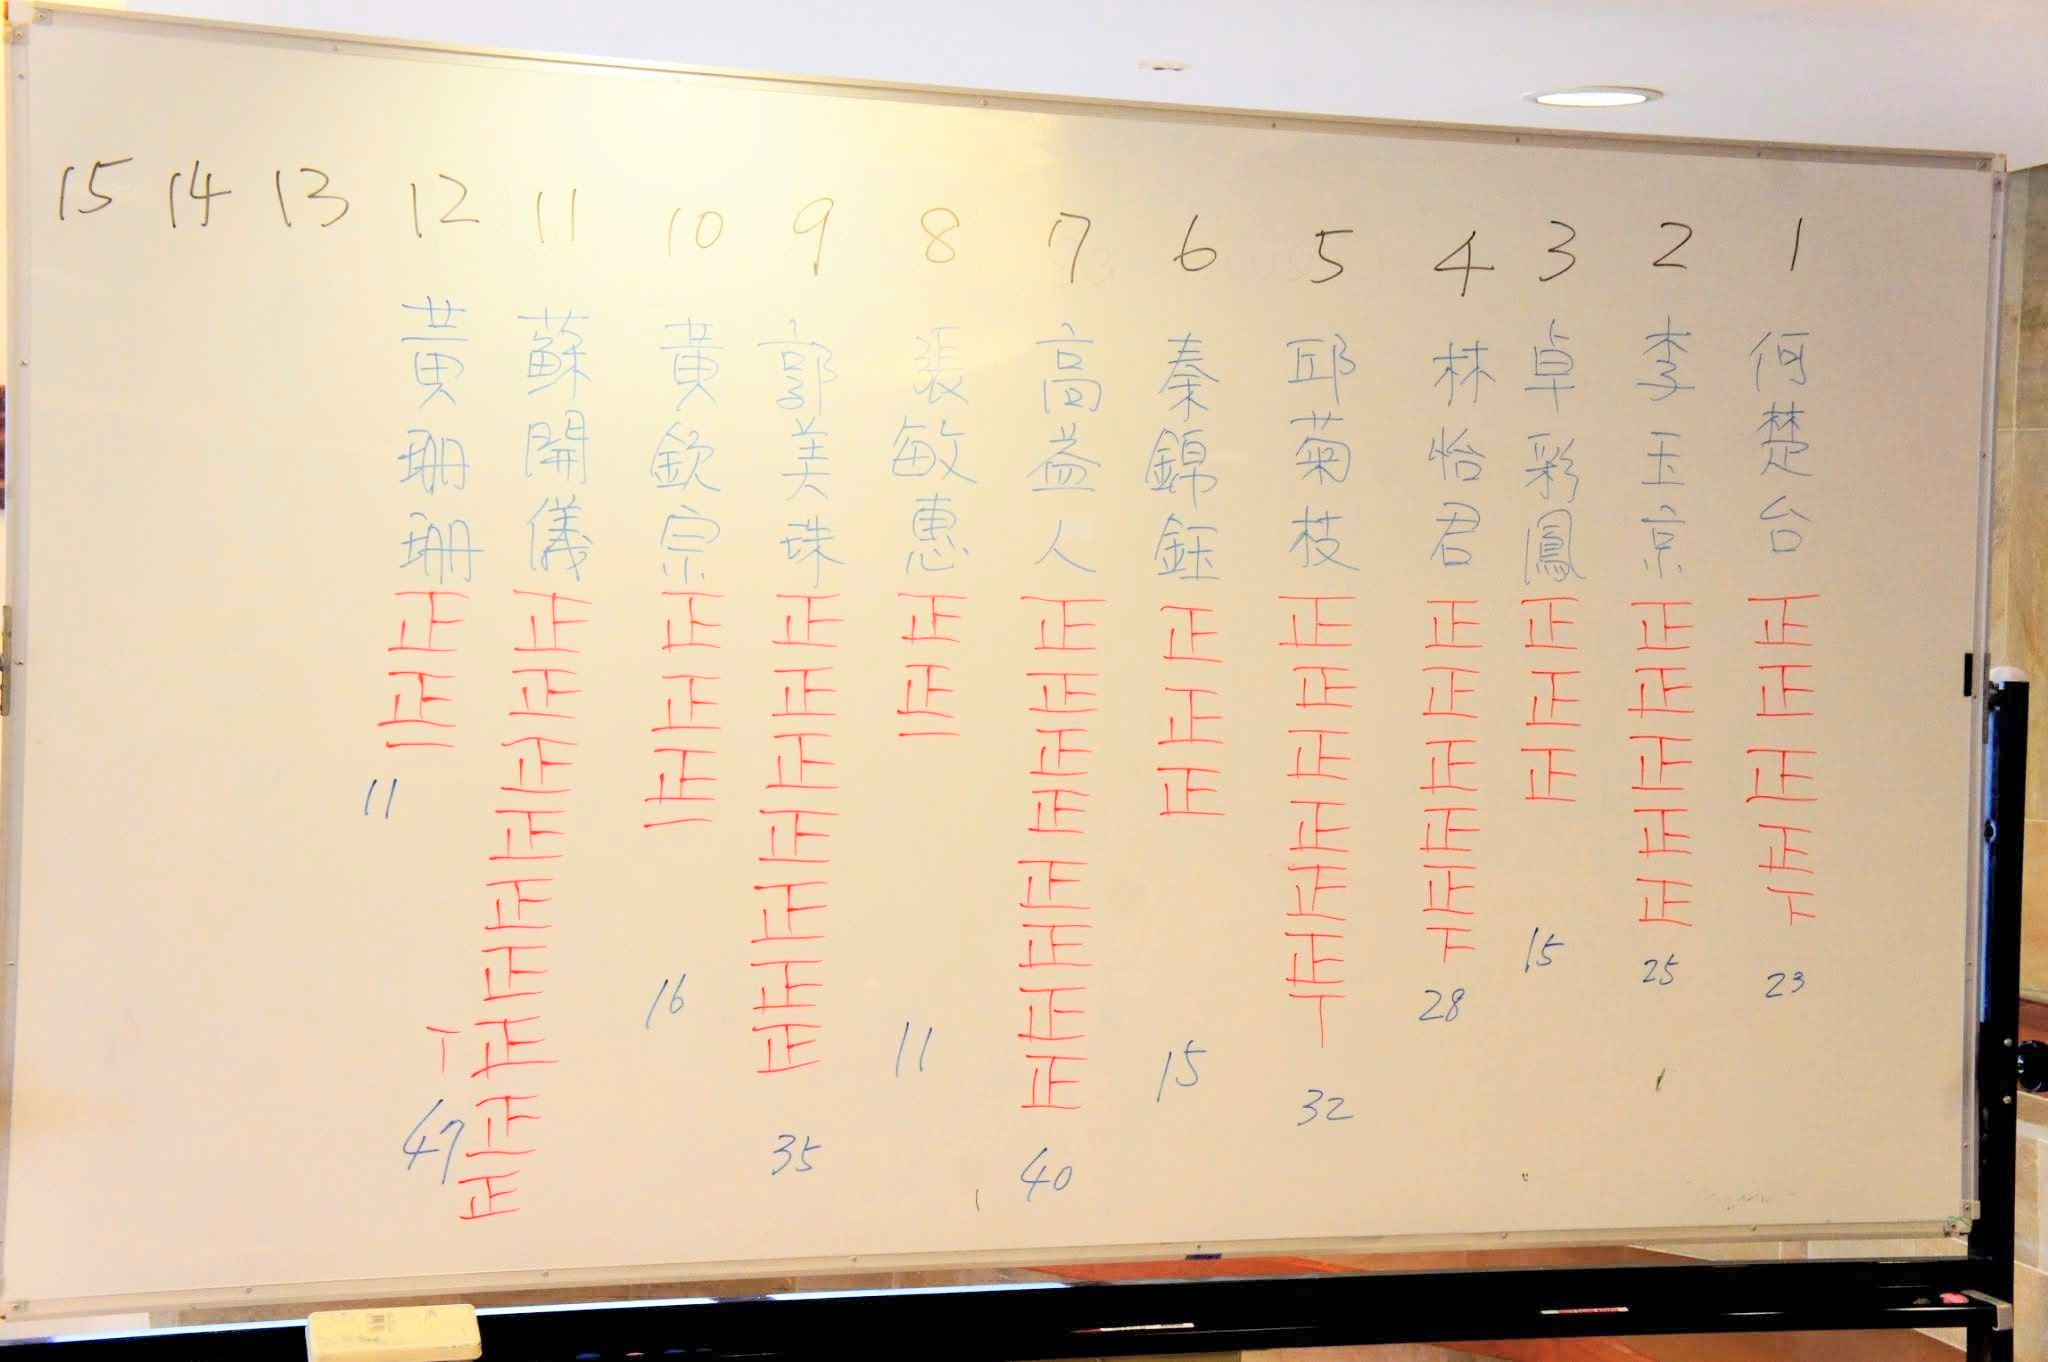 1 何楚台 正正正正下 23
2 李玉京 正正正正正 25
3 卓彩鳳 正正正 15
4 林怡君 正正正正正下 28
5 邱菊枝 正正正正正正丅 32
6 秦錦鈺 正正正 15
7 高益人 正正正正正正正正 40
8 張敏惠 正正一 11
9 郭美珠 正正正正正正正 35
10 黃欽宗 正正正一 16
11 蘇開儀 正正正正正正正正正丅 47
12 黃珊珊 正正一 11
13
14
15